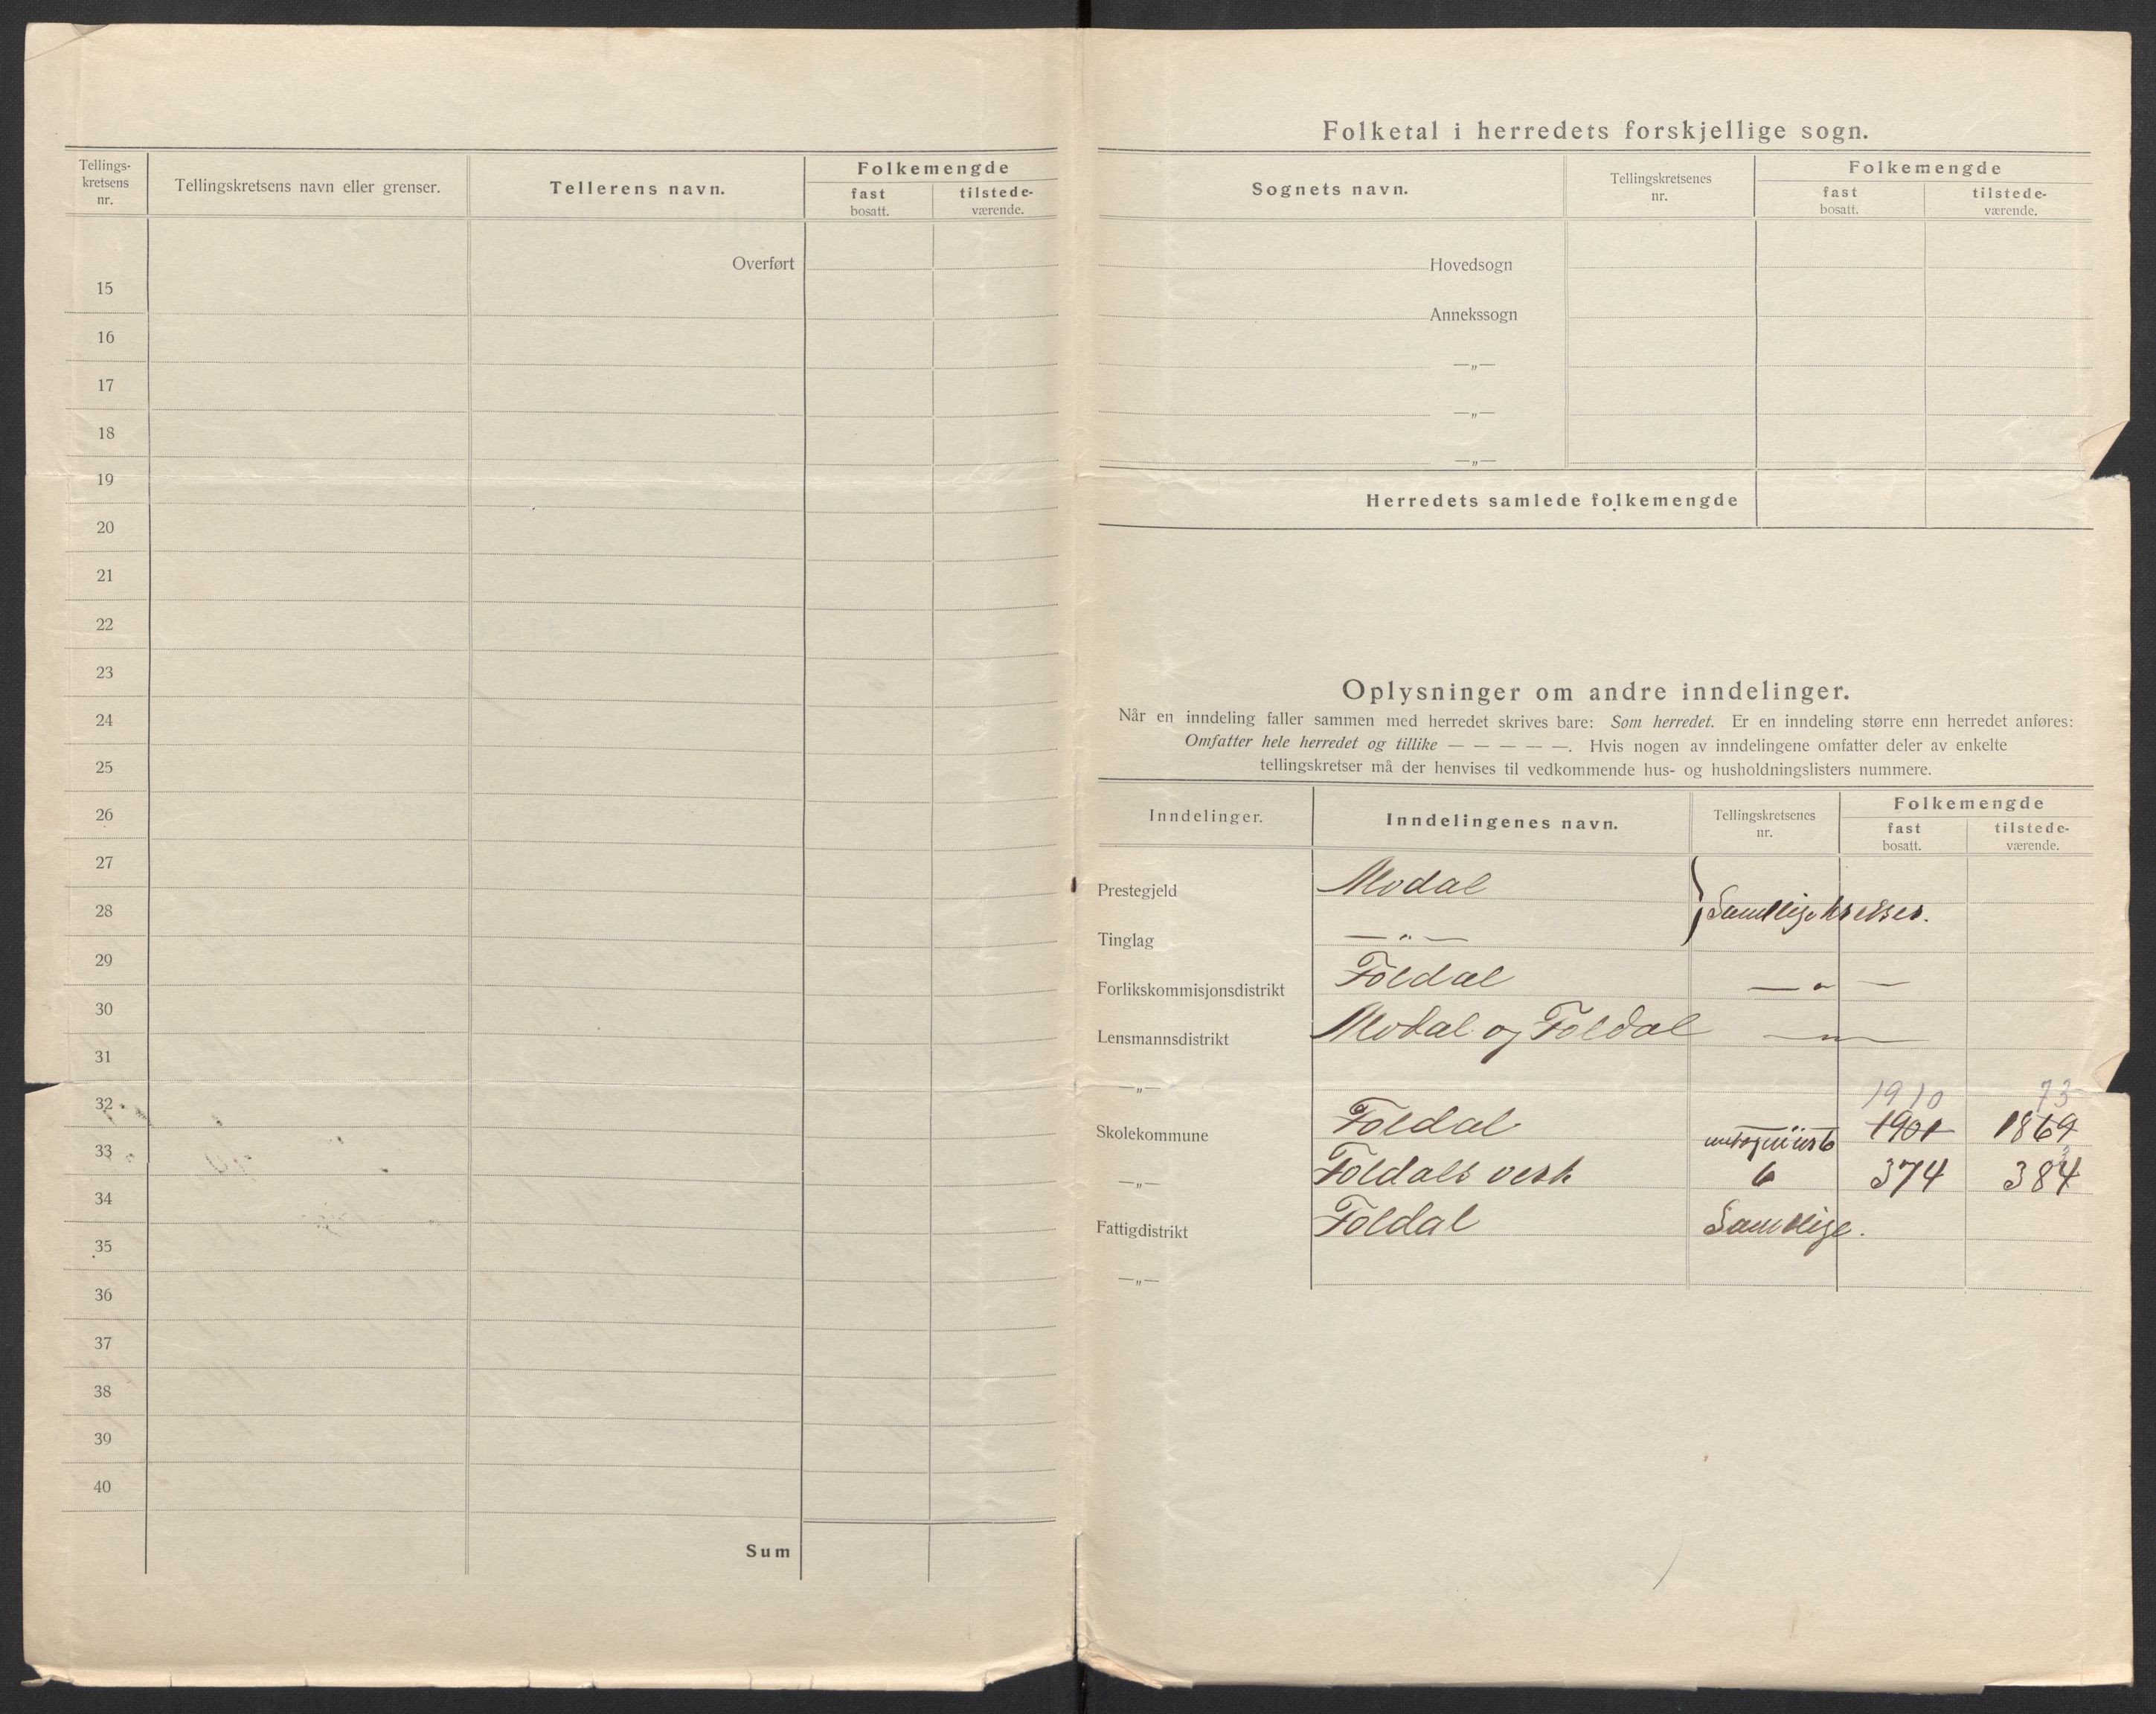 Tellings-
kretsens
nr.
Tellingskretsens navn eller grenser.
Tellerens navn.
Folkemengde
fast
bosatt.
tilstede-
værende.
Overført
15
16
17
18
19
20
21
22
23
24
25
26
27
28
29
30
31
32
33
34
35
36
37
38
39
40
Sum
Folketal i herredets forskjellige sogn.
Sognets navn.
Tellingskretsenes
nr.
Folkemengde
fast
bosatt.
tilstede-
værende.
Hovedsogn
Annekssogn
—„—
—„—
—„—
Herredets samlede folkemengde
Oplysninger om andre inndelinger.
Når en inndeling faller sammen med herredet skrives bare: Som herredet. Er en inndeling større enn herredet anføres:
Omfatter hele herredet og tillike — — — — —. Hvis nogen av inndelingene omfatter deler av enkelte
tellingskretser må der henvises til vedkommende hus- og husholdningslisters nummere.
Inndelinger.
Inndelingenes navn.
Tellingskretsenes
nr.
Folkemengde
fast
bosatt.
tilstede-
værende.
Prestegjeld Alvdal Samtlige kretser.
Tinglag —„—
Forlikskommisjonsdistrikt Foldal —„—
Lensmannsdistrikt Alvdal og Foldal —„—
—„—
1910 73
Skolekommune Foldal 6 1901 1869
—„— Foldals verk 6 374 384
Fattigdistrikt Foldal Samtlige.
—„—